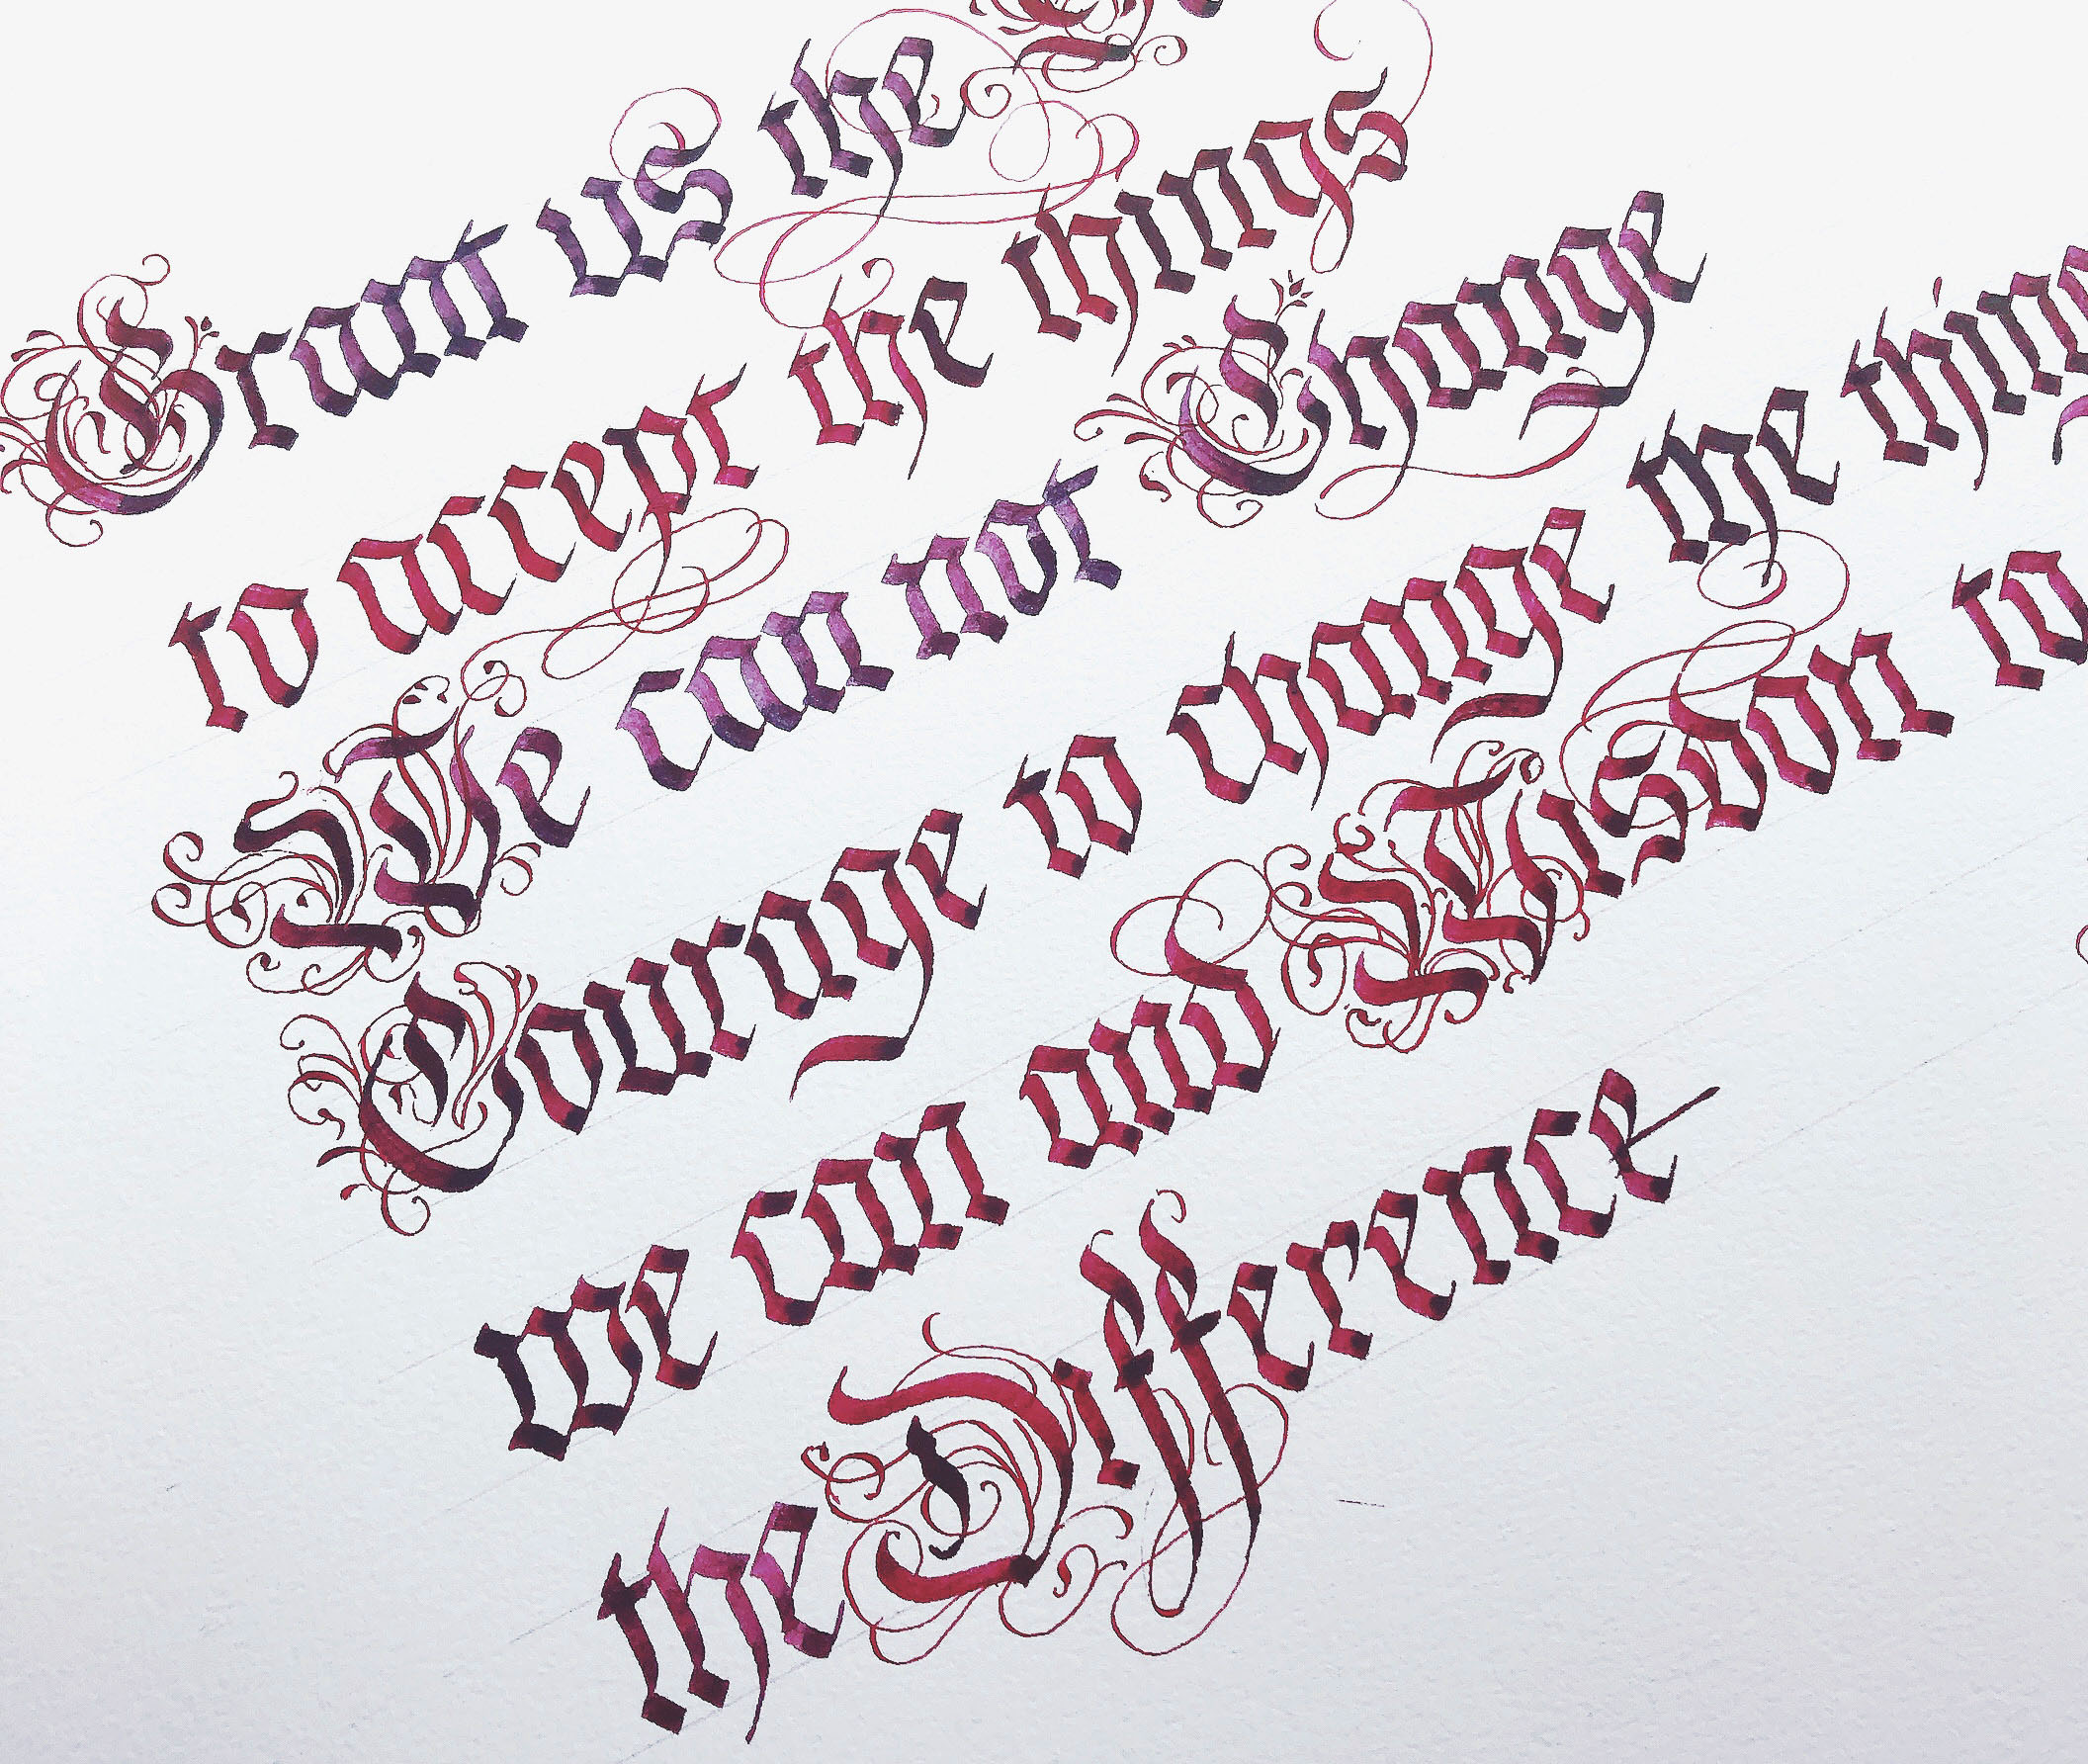 Grant us the
to accept the things
We can not Change
Courage to change the thin
we can and Wisdon to
the Difference